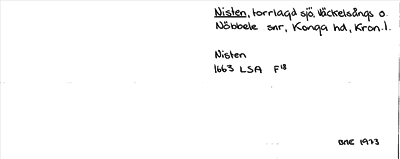 Nisten, torrlagd sjö, Väckelsångs o.
Nöbbele snr, Konga hd, Kron.l.
Nisten
1663 LSA F18
BME 1973